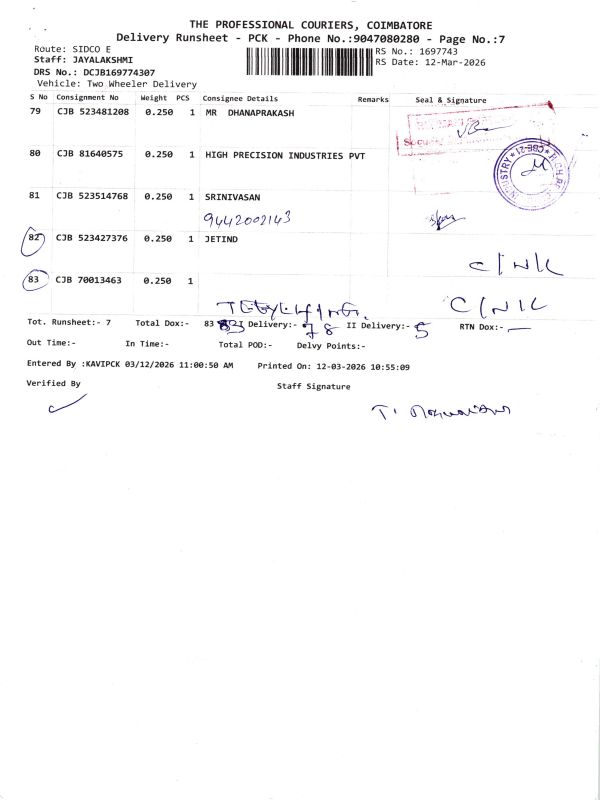 THE PROFESSIONAL COURIERS, COIMBATORE
Delivery Runsheet - PCK - Phone No.:9047080280 - Page No.:7
Route: SIDCO E
RS No.: 1697743
Staff: JAYALAKSHMI
RS Date: 12-Mar-2026
DRS No.: DCJB169774307
Vehicle: Two Wheeler Delivery
S No Consignment No Weight PCS Consignee Details Remarks Seal & Signature
79 CJB 523481208 0.250 1 MR DHANAPRAKASH
80 CJB 81640575 0.250 1 HIGH PRECISION INDUSTRIES PVT
81 CJB 523514768 0.250 1 SRINIVASAN
9442002143
82 CJB 523427376 0.250 1 JETIND
C/N/L
83 CJB 70013463 0.250 1
C/N/L
Tot. Runsheet:- 7 Total Dox:- 83 I Delivery:- 78 II Delivery:- 5 RTN Dox:- —
Out Time:- In Time:- Total POD:- Delvy Points:-
Entered By :KAVIPCK 03/12/2026 11:00:50 AM Printed On: 12-03-2026 10:55:09
Verified By Staff Signature